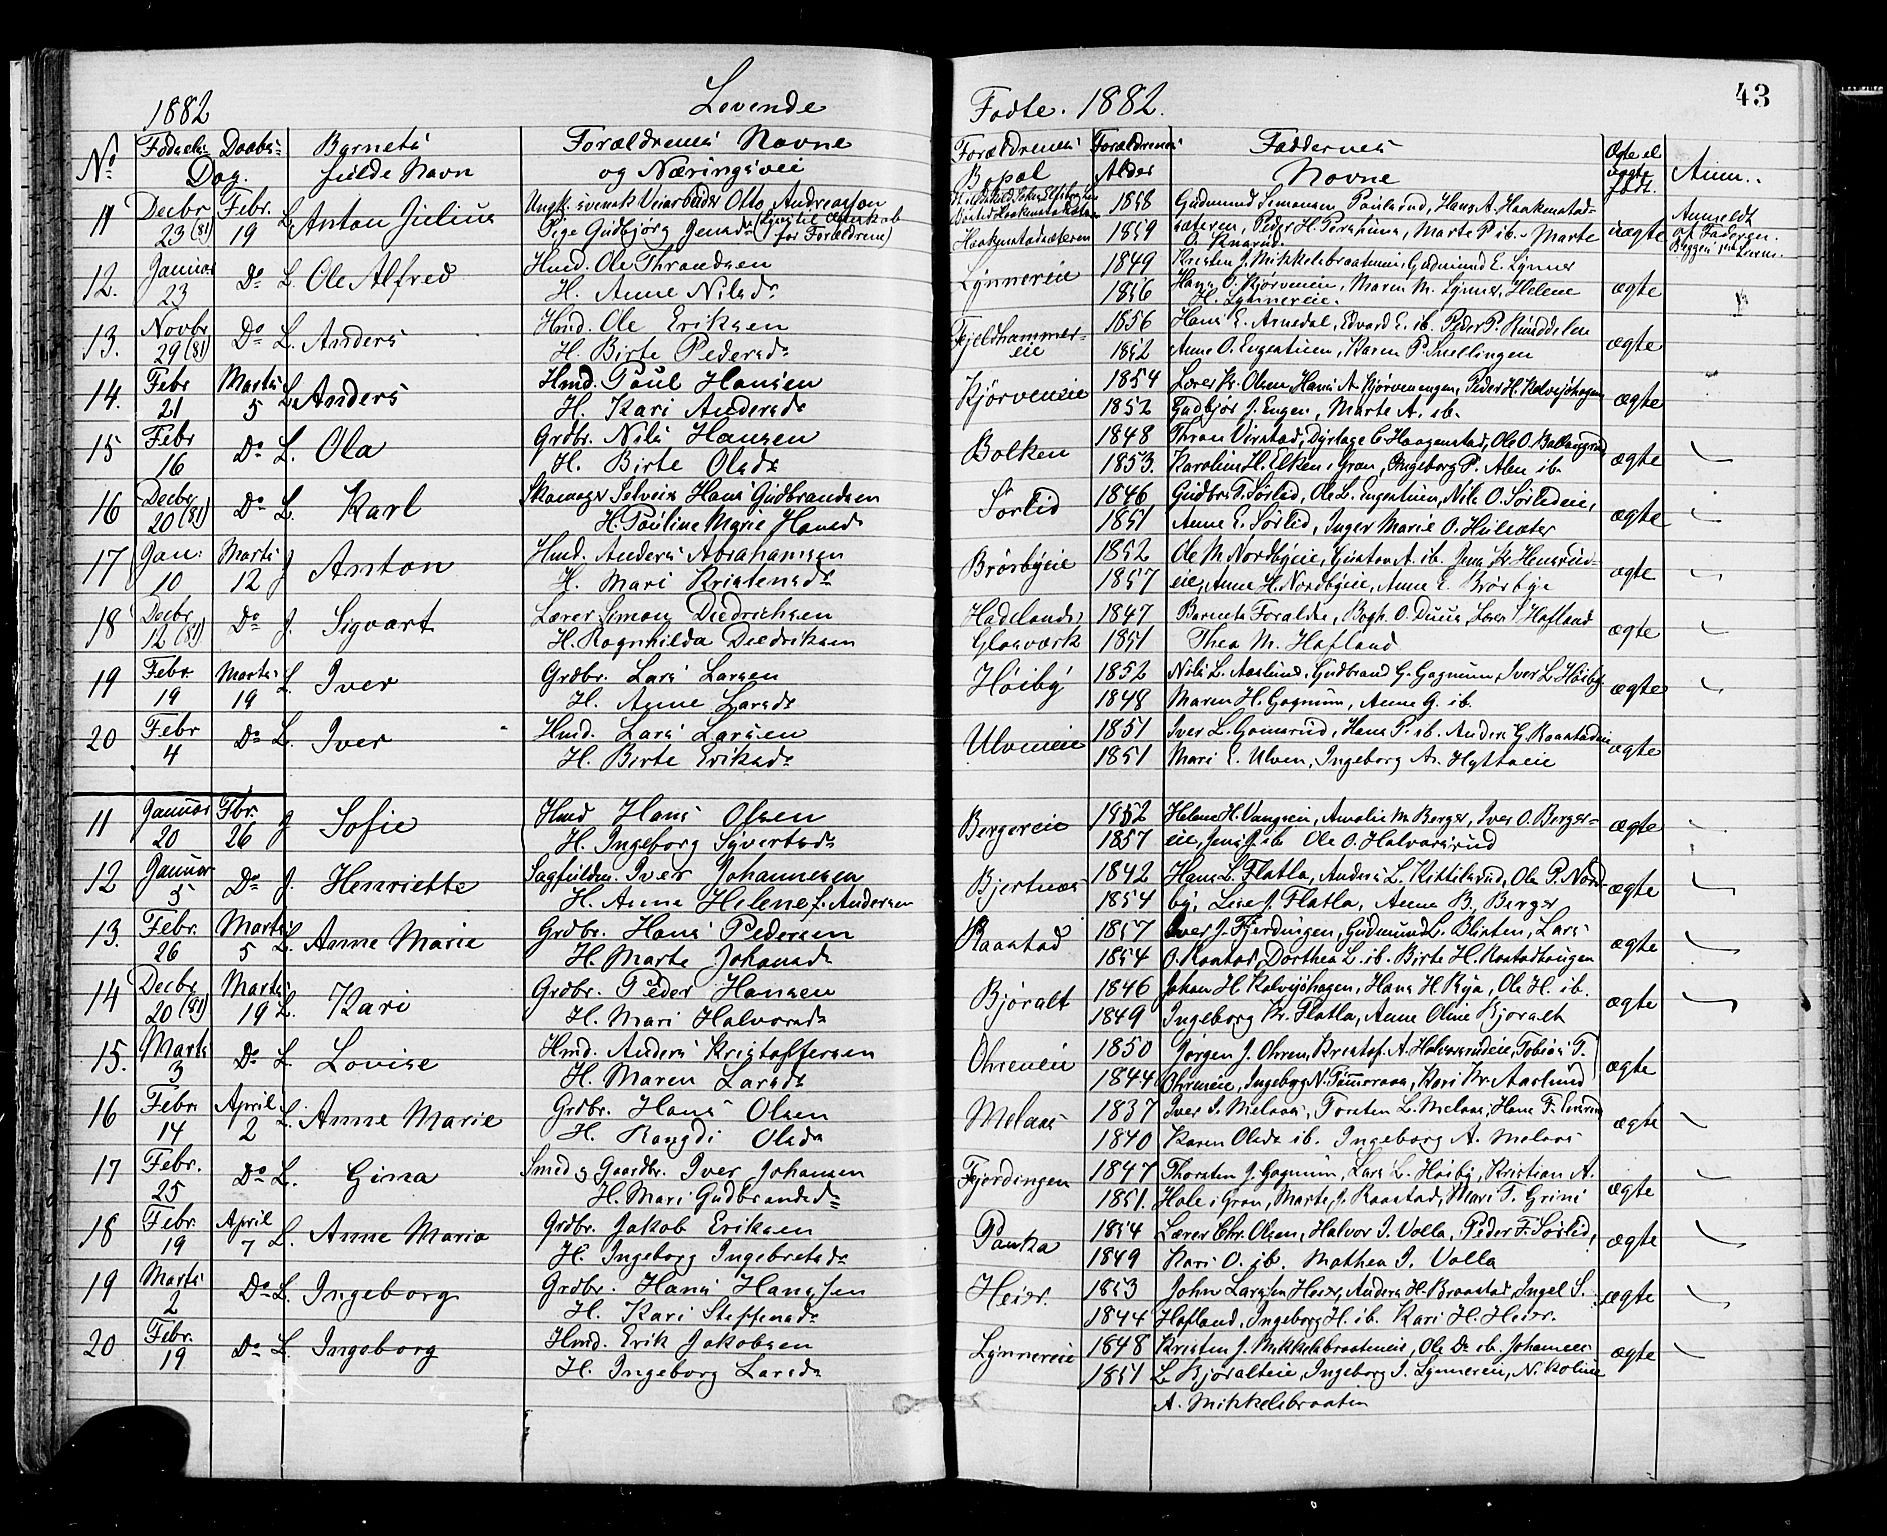 43
1882 Levende Fødte. 1882.
No Fødsels- Daabs- Barnets Forældrenes Navne Forældrenes Forældrenes Faddernes Ægte el
Dag. fulde Navn og Næringsvei Bopæl Alder Navne uægte født. Anm.
11 Decbr Febr. L. Anton Julius Ungk. svensk Otto Andreasson 1858 Gudmund Simensen Paulsrud, Hans A. Haakenstad- uægte Anmeldt
23 (81) 19 Pige Gudbjørg Jensdr (for Forældrene) Haakenstadsæteren 1859 sæteren, Peder H. Marte P. ib. Marte af Faderen.
O. Knarud.
12. Januar Do L. Ole Alfred Hmd. Ole Thrandsen Lynnereie 1849 Kristen J. Mikkelsbraateneie, Gudmund E. Lynner ægte
23 H. Anne Nilsdr 1856 Hans O. Kjørveneie, Maren M. Lynner, Helene
H. Lynnereie.
13. Novbr Do L. Anders Hmd. Ole Eriksen Fjeldhammer- 1856 Hans E. Arnedal, Edvard E. ib. Peder P. ægte
29 (81) H. Birte Pedersdr eie 1852 Anne O. Engentuen, Karen P. Snellingen
14. Febr Marts L. Anders Hmd. Paul Hansen Kjørveneie 1854 Lærer Kr. Olsen, Hans A. Kjørvenengen, Peder H. Kalvsjøhagen ægte
21 5 H. Kari Andersdr 1852 Gudbjør J. Engen, Marte A. ib.
15 Febr Do L. Ola Grdbr. Nils Hansen Bolken 1848 Thran Virstad, C. Haagenstad, Ole O. Ballangrud ægte
16 H. Birte Olsdr 1853. Karoline H. Elken i Gran, Ingeborg P. Alm ib.
16 Decbr Do L. Karl Skomager Selveier Hans Gudbrandsen Sørlid 1846 Gudbr. T. Sørlid, Ole L. Engentuen, Nils O. Sørlideie, ægte
20 (81) H. Pauline Marie Hansdr 1851 Anne E. Sørlid, Inger Marie O. Hulsæter
17 Jan: Marts J Anton Hmd. Anders Abrahamsen Brørbyeie 1852 Ole M. Nordbyeie, Gustav A. ib. Jens Kr. Hensrud- ægte
10 12 H. Mari Kristensdr 1857 eie, Anne H. Nordbyeie, Anne E. Brørbye
18 Decbr Do J. Sigvart Lærer Simon Diedrichsen Hadelands 1847 Barnets Forældre, Bogh. O. Duus, Lærer Hofland ægte
12 (81) H. Ragnhilda Diedriksen Glasværk 1851 Thea M. Hofland
19 Febr Marts L. Iver Grdbr. Lars Larsen Høiby 1852 Nils L. Aaslund, Gudbrand G. Gagnum, Iver L. Høiby, ægte
19 19 H. Anne Larsdr 1848 Maren H. Gagnum, Anne G. ib.
20 Febr Do L. Iver Hmd. Lars Larsen Ulveneie 1851 Iver L. Gamsrud, Hans P. ib. Anders G. Raastadeie ægte
4 H. Berte Eriksdr 1851 Mari E. Ulven, Ingeborg A. Hyttaeie
11 Januar Fbr. J Sofie Hmd Hans Olsen Bergereie 1852 Helene H. Vangseie, Amalie M. Berger, Iver O. Berger- ægte
20 26 H. Ingeborg Syvertsdr 1857 eie, Jens J. ib Ole O. Halvorsrud
12 Januar Do J. Henriette Sagfuldm. Iver Johannesen Bjertnæs 1842 Hans L. Flatla, Anders L. Kittelsrud, Ole P. Nord- ægte
5 H. Anne Helene f. Andersen 1854 by, Lise J. Flatla, Anne B. Berger
13. Febr. Marts L. Anne Marie Grdbr. Hans Pedersen Raastad 1857 Iver J. Fjerdingen, Gudmund L. Olinten, Lars ægte
26 5 H. Marte Johansdr 1854 O. Raastad, Dorthea L. ib. Birte H. Raastadhaugen
14 Decbr Marts L. Kari Grdbr. Peder Hansen Bjøralt 1846 Johan H. Kalvsjøhagen, Hans H. Rya, Ole H. ib. ægte
20 (81) 19 H. Mari Halvorsdr 1849 Ingeborg Kr. Flatla, Anne Oline Bjøralt
15. Marts Do L. Lovise Hmd. Anders Kristoffersen Ohreneie 1850 Jørgen J. Ohren, Kristof. A. Halvorsrudeie, Tobias T. ægte
3 H. Maren Larsdr 1844 Ohreneie, Ingeborg N. Tømmeraas, Kari Kr. Aaslund
16 Febr April L. Anne Marie Grdbr. Hans Olsen Melaas 1837 Iver I. Melaas, Torsten L. Melaas, Hans F. ægte
14 2 H. Rangdi Olsdr 1840 Karen Olsdr ib. Ingeborg A. Melaas
17 Febr. Do L. Gina Smed og Gaardbr. Iver Johansen Fjerdingen 1847 Thorsten J. Gagnum, Lars L. Høiby, Kristian A. ægte
25 H. Mari Gudbrandsdr 1851. Hole i Gran, Marte J. Raastad, Mari T. Grini
18 Febr. April L. Anne Maria Grdbr. Jakob Eriksen Pauka 1854 Lærer Chr. Olsen, Halvor I. Volla, Peder F. Sørlid, ægte
19 7 H. Ingeborg Ingebretsdr 1849 Kari O. ib. Mathea I. Volla
19 Marts Do L. Ingeborg Grdbr. Hans Hanssen Heier. 1853 John Larsen Heier, Anders H. Braastad, Ingel S. ægte
2 H. Kari Steffensdr 1844 Hofland, Ingeborg H. ib. Kari H. Heier.
20 Febr. Do L. Ingeborg Hmd. Erik Jakobsen Lynnereie 1848 Kristen J. Mikkelsbraateneie, Ole Do ib. Johannes ægte
19 H. Ingeborg Larsdr 1851 L. Bjøralteie, Ingeborg I. Lynnereie, Nikoline
A. Mikkelsbraaten